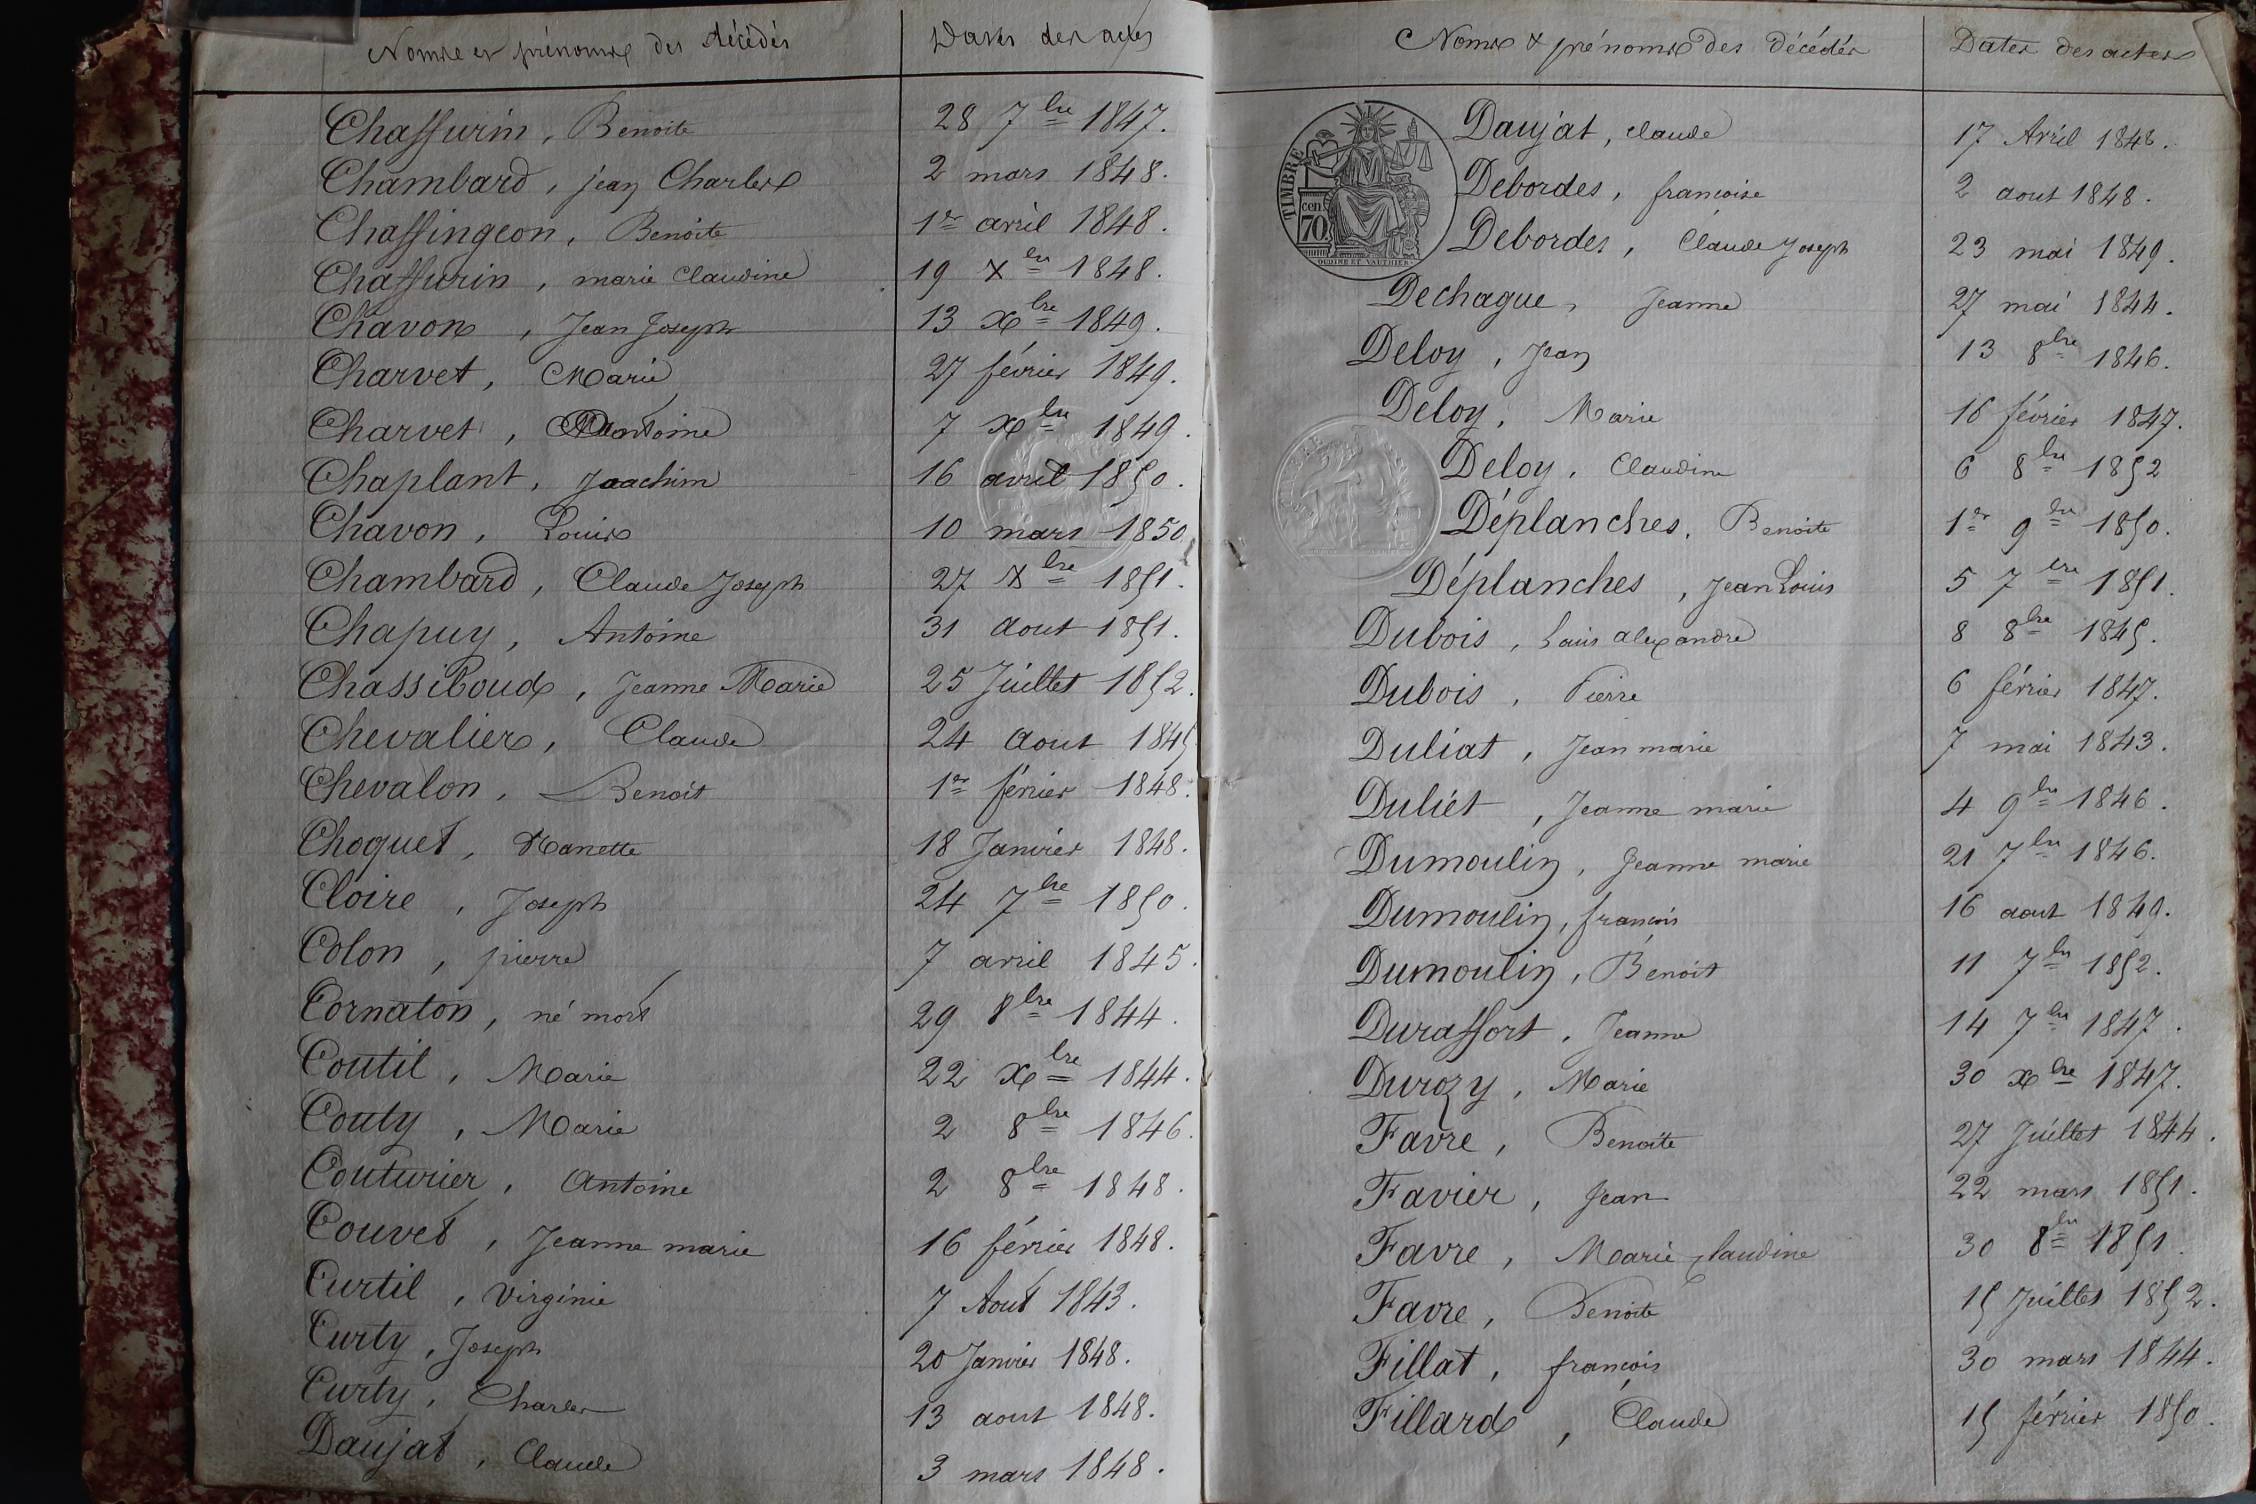 Noms et prénoms des décédés Dates des actes
Chaffurin, Benoite 28 7bre 1847.
Chambard, jean Charles 2 mars 1848.
Chaffingeon, Benoite 1er avril 1848.
Chaffurin, marie Claudine 19 Xbre 1848.
Chavon, Jean Joseph 13 Xbre 1849.
Charvet, Marie 27 février 1849.
Charvet, Antoine 7 Xbre 1849.
Chaplant, Joachim 16 avril 1850.
Chavon, Louis 10 mars 1850
Chambard, Claude Joseph 27 Xbre 1851.
Chapuy, Antoine 31 aout 1851.
Chassiboud, Jeanne Marie 25 Juillet 1852.
Chevalier, Claude 24 aout 1845
Chevalon, Benoit 1er février 1848.
Choquet, Nanette 18 Janvier 1848.
Cloire, Joseph 24 7bre 1850.
Colon, pierre 7 avril 1845.
Cornaton, né mort 29 8bre 1844.
Coutil, Marie 22 Xbre 1844.
Couty, Marie 2 8bre 1846.
Couturier, Antoine 2 8bre 1848.
Couvet, Jeanne marie 16 février 1848.
Curtil, Virginie 7 Aout 1843.
Curty, Joseph 20 Janvier 1848.
Curty, Charles 13 aout 1848.
Daujat, Claude 3 mars 1848.
Noms & prénoms des décédés Dates des actes
TIMBRE
70 cen
OUDINE ET VAUTHIER
Daujat, claude 17 Avril 1848.
Debordes, francoise 2 aout 1848.
Debordes, Claude Joseph 23 mai 1849.
Dechague, Jeanne 27 mai 1844.
Deloy, Jean 13 8bre 1846.
Deloy, Marie 16 février 1847.
Deloy, Claudine 6 8bre 1852
Déplanches, Benoite 1er 9bre 1850.
Déplanches, Jean Louis 5 7bre 1851.
Dubois, Louis alexandre 8 8bre 1845.
Dubois, Pierre 6 février 1847.
Duliat, Jean marie 7 mai 1843.
Duliet, Jeanne marie 4 9bre 1846.
Dumoulin, Jeanne marie 21 7bre 1846.
Dumoulin, francois 16 aout 1849.
Dumoulin, Benoit 11 7bre 1852.
Duraffort, Jeanne 14 7bre 1847.
Durozy, Marie 30 Xbre 1847.
Favre, Benoite 27 Juillet 1844.
Favier, Jean 22 mars 1851.
Favre, Marie Claudine 30 8bre 1851.
Favre, Benoite 15 Juillet 1852.
Fillat, françois 30 mars 1844.
Fillard, Claude 15 février 1850.